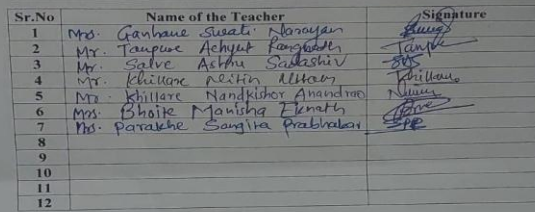 Sr.No Name of the Teacher Signature
1 Mrs. Ganhane Swati Narayan
2 Mr. Tanpure Achyut Rangnath Tanpure
3 Mr. Salve Ashru Sadashiv
4 Mr. Khillare Nitin Uttam Khillare
5 Mr. Khillare Nandkishor Anandrao
6 Mrs. Bhoite Manisha Eknath
7 Mrs. Parakhe Sangita Prabhakar
8
9
10
11
12